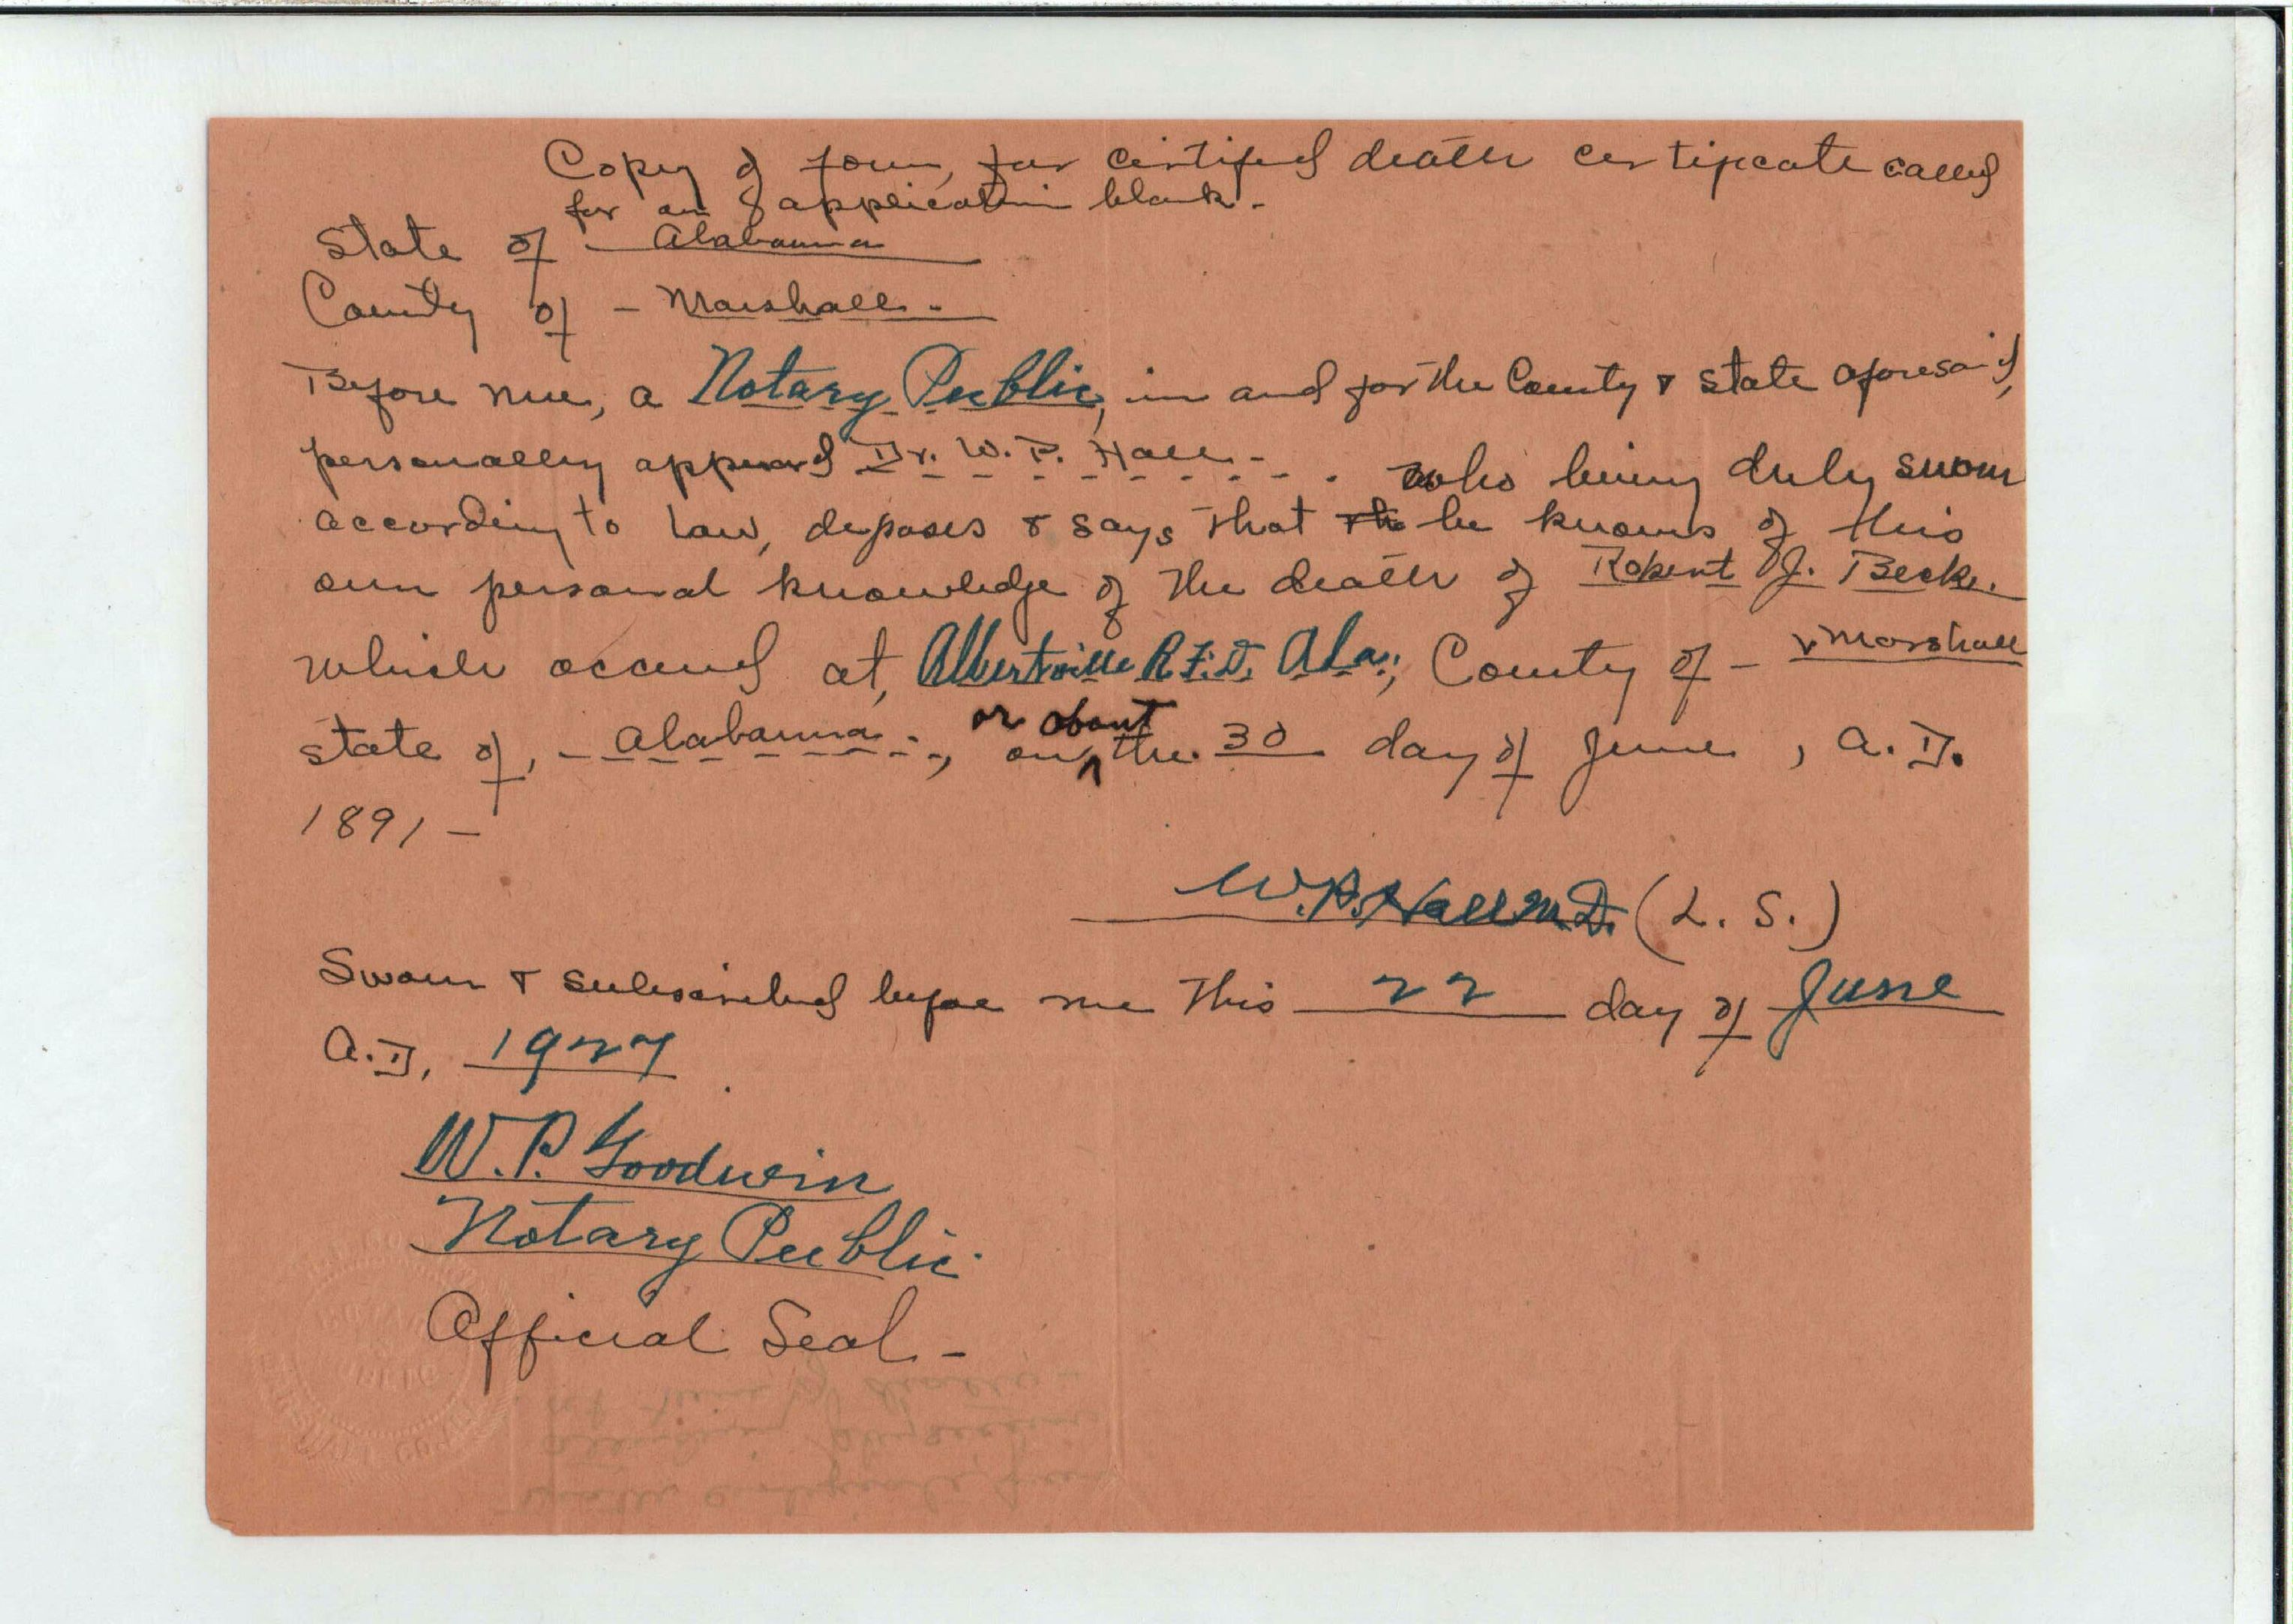 Copy of form, for certified death certificate called
for on application blank.-
State of - Alabama
County of - Marshall.-
Before me, a Notary Public, in and for the County & State aforesaid,
personally appeared Dr. W. P. Hall - who being duly sworn
according to law, deposes & says that he knows of this
own personal knowledge of the death of Robert J. Beck.
which occured at, Albertville R.F.D. Ala., County of - Marshall
state of, - Alabama -, on or about the 30 day of June, A. D.
1891 -
W.P. Hall M.D. (L. S.)
Sworn & subscribed before me this 22 day of June
A.D, 1927
W. P. Goodwin
Notary Public
Official Seal -